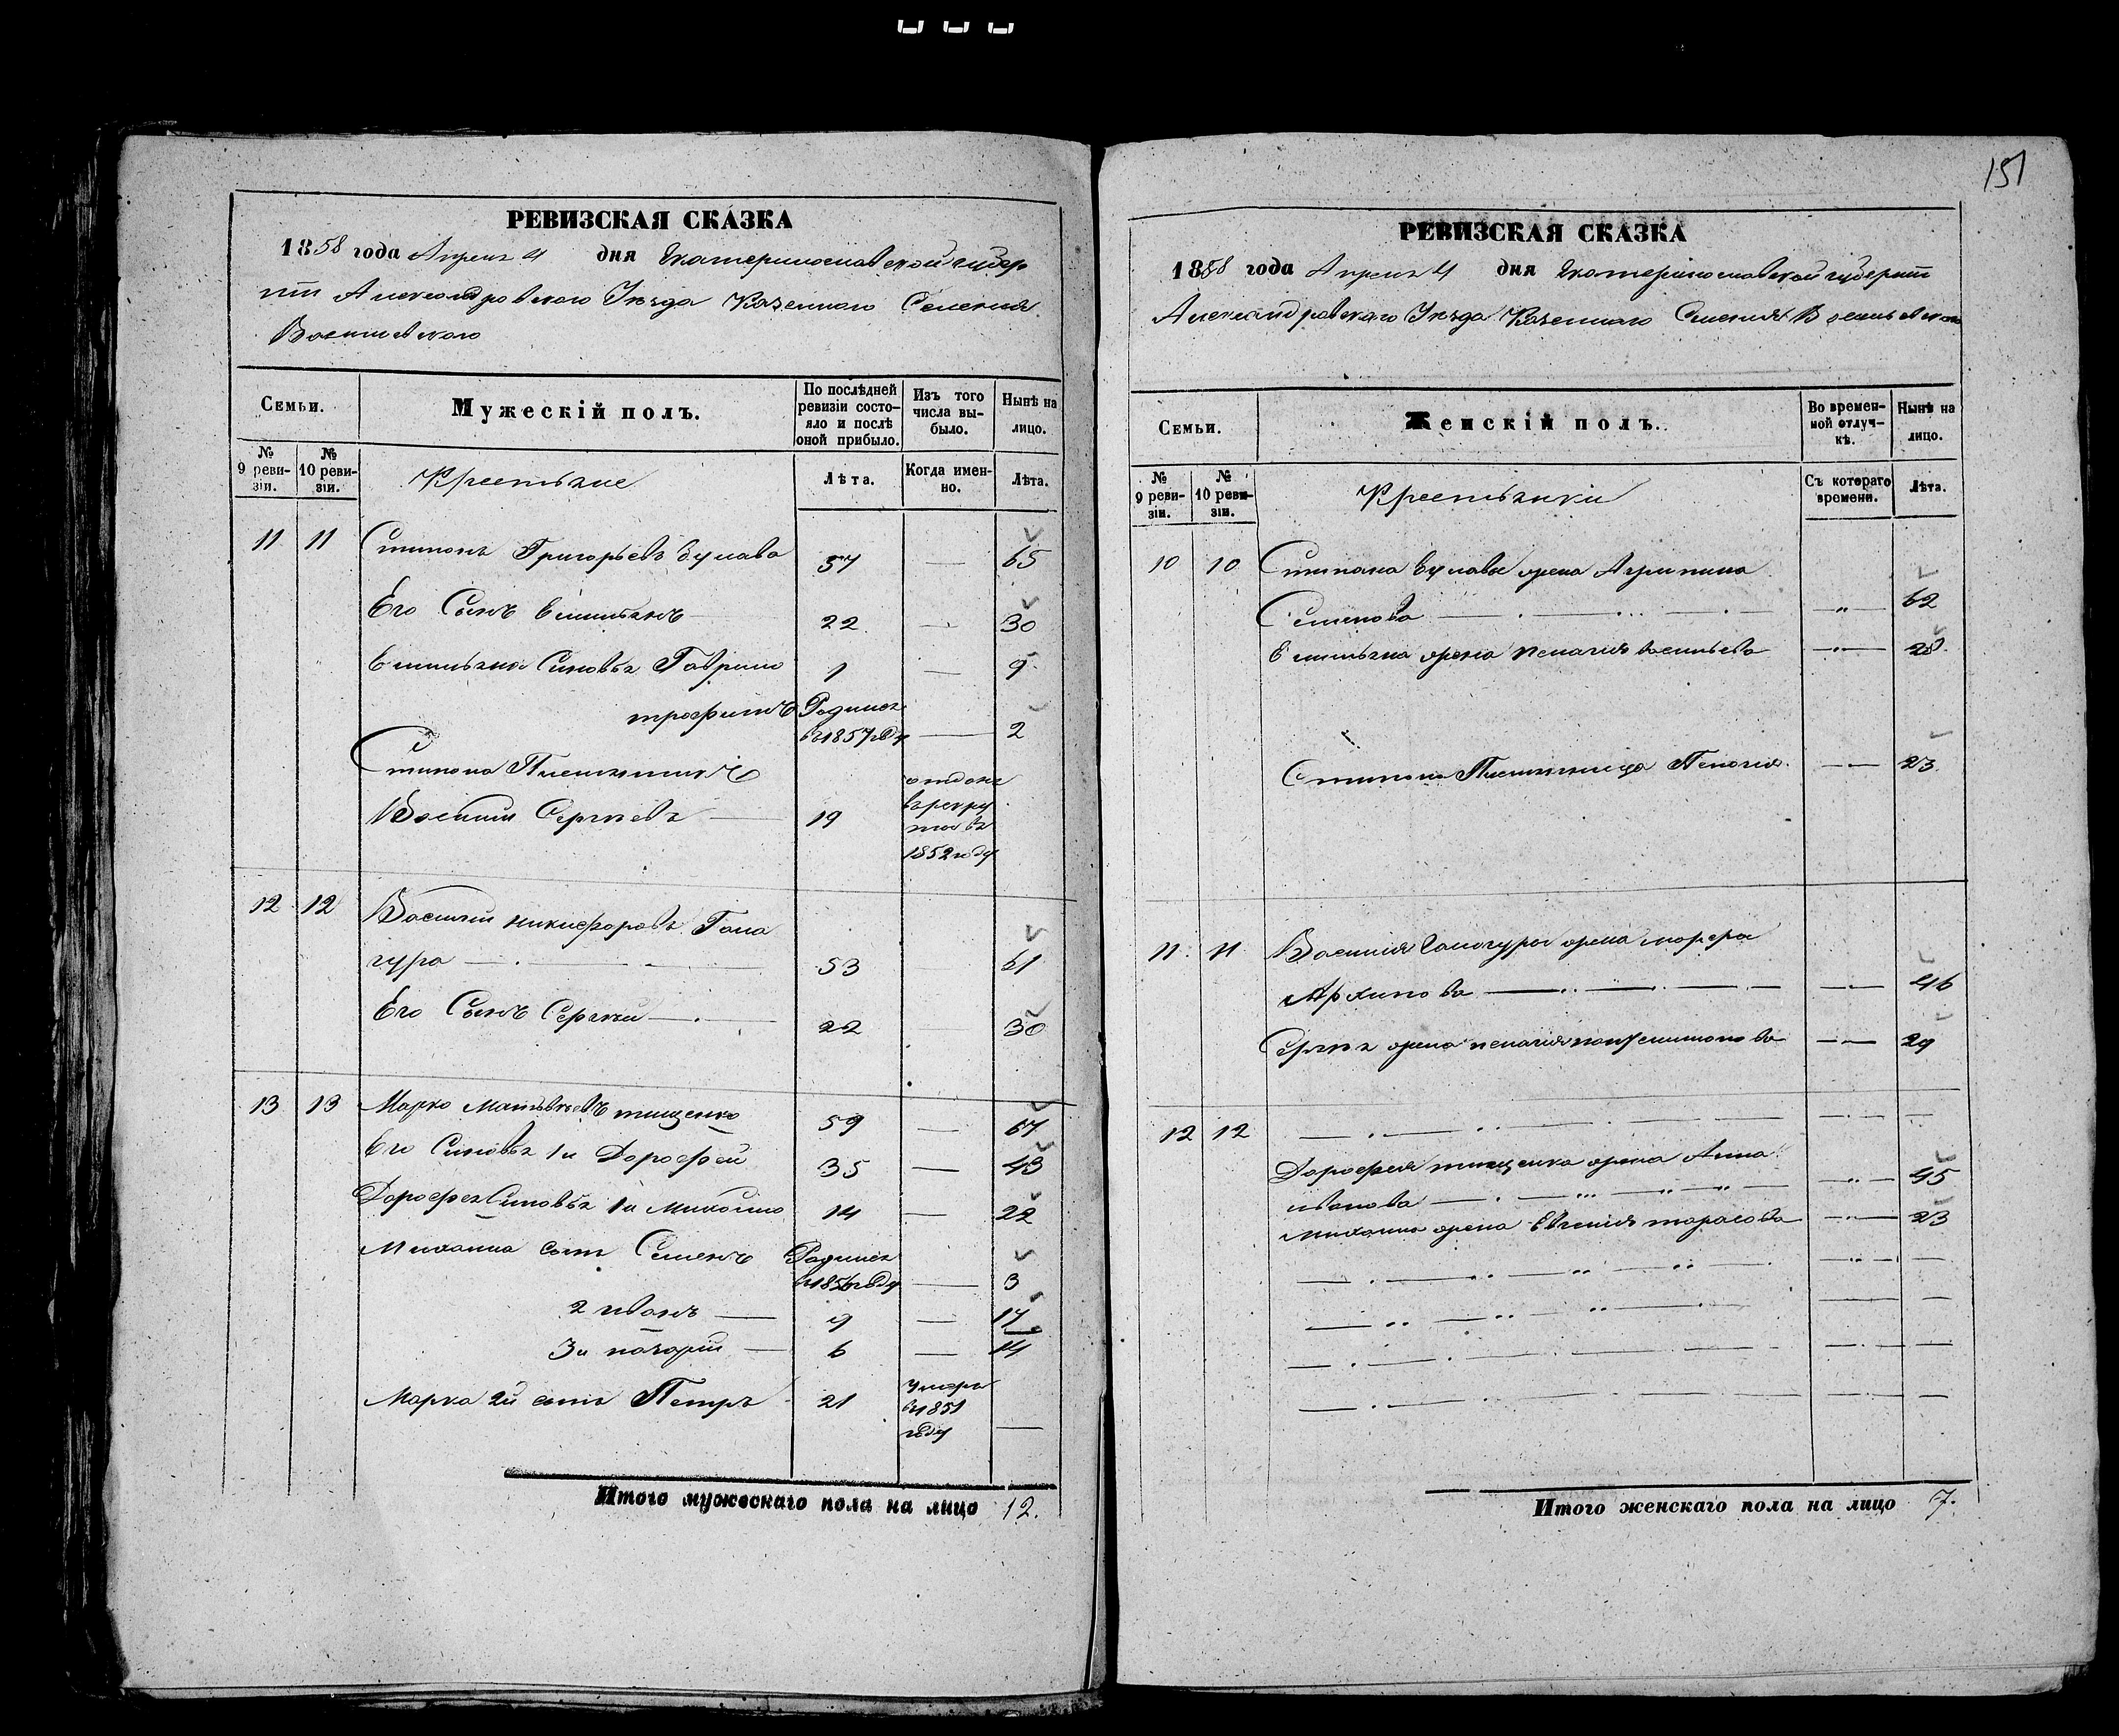 151
РЕВИЗСКАЯ СКАЗКА
1858 года Апреля 4 дня Екатеринославской губер
нии Александровского Уезда Казенного Селения
Васильевского
Семьи.
Мужескій полъ.
По послѣдней ревизіи состояло и послѣ оной прибыло.
Изъ того числа выбыло.
Нынѣ на лицо.
№ 9 ревизіи.
№ 10 ревизіи.
Крестьяне
Лѣта.
Когда именно.
Лѣта.
11 11 Степанъ Григорьевъ Булава 57 — 65
Его Сынъ Емильянъ 22 — 30
Емильяна Сыновья Гаврило 1 — 9
трофимъ Родился въ 1857 году — 2
Степана Племянникъ
Василий Сергеевъ — 19 отданъ в рекруты въ 1852 году
12 12 Василий никифоровъ Гала
гура — 53 61
Его Сынъ Сергей — 22 30
13 13 Марко Матвеевъ тищенко 59 — 67
Его Сыновья 1й Дорофей 35 — 43
Дорофея Сыновья 1й Михайло 14 — 22
Михаила сынъ Семенъ Родился въ 1856 году — 3
2 иванъ — 9 — 17
3й назарий — 6 — 14
Марка 2й сынъ Петръ 21 умеръ в 1851 году —
Итого мужескаго пола на лицо 12.
РЕВИЗСКАЯ СКАЗКА
1858 года Апреля 4 дня Екатеринославской губернии
Александровского Уезда Казенного Селения Васильевского
Семьи.
Женскій полъ.
Во временной отлучкѣ.
Нынѣ на лицо.
№ 9 ревизіи.
№ 10 ревизіи.
Крестьянки
Съ котораго времени.
Лѣта.
10 10 Степана Булавы жена Агрипина
Семенова — 62
Емильяна жена пелагия васильева — 28
Степана Племянница Пелагия — 23
11 11 Василия Галагуры жена марфа
Архипова — 46
Сергея жена пелагия — 29
12 12 —
Дорофея тищенка жена Анна
иванова — 45
михаила жена Евгения тарасова — 23
Итого женскаго пола на лицо 7.